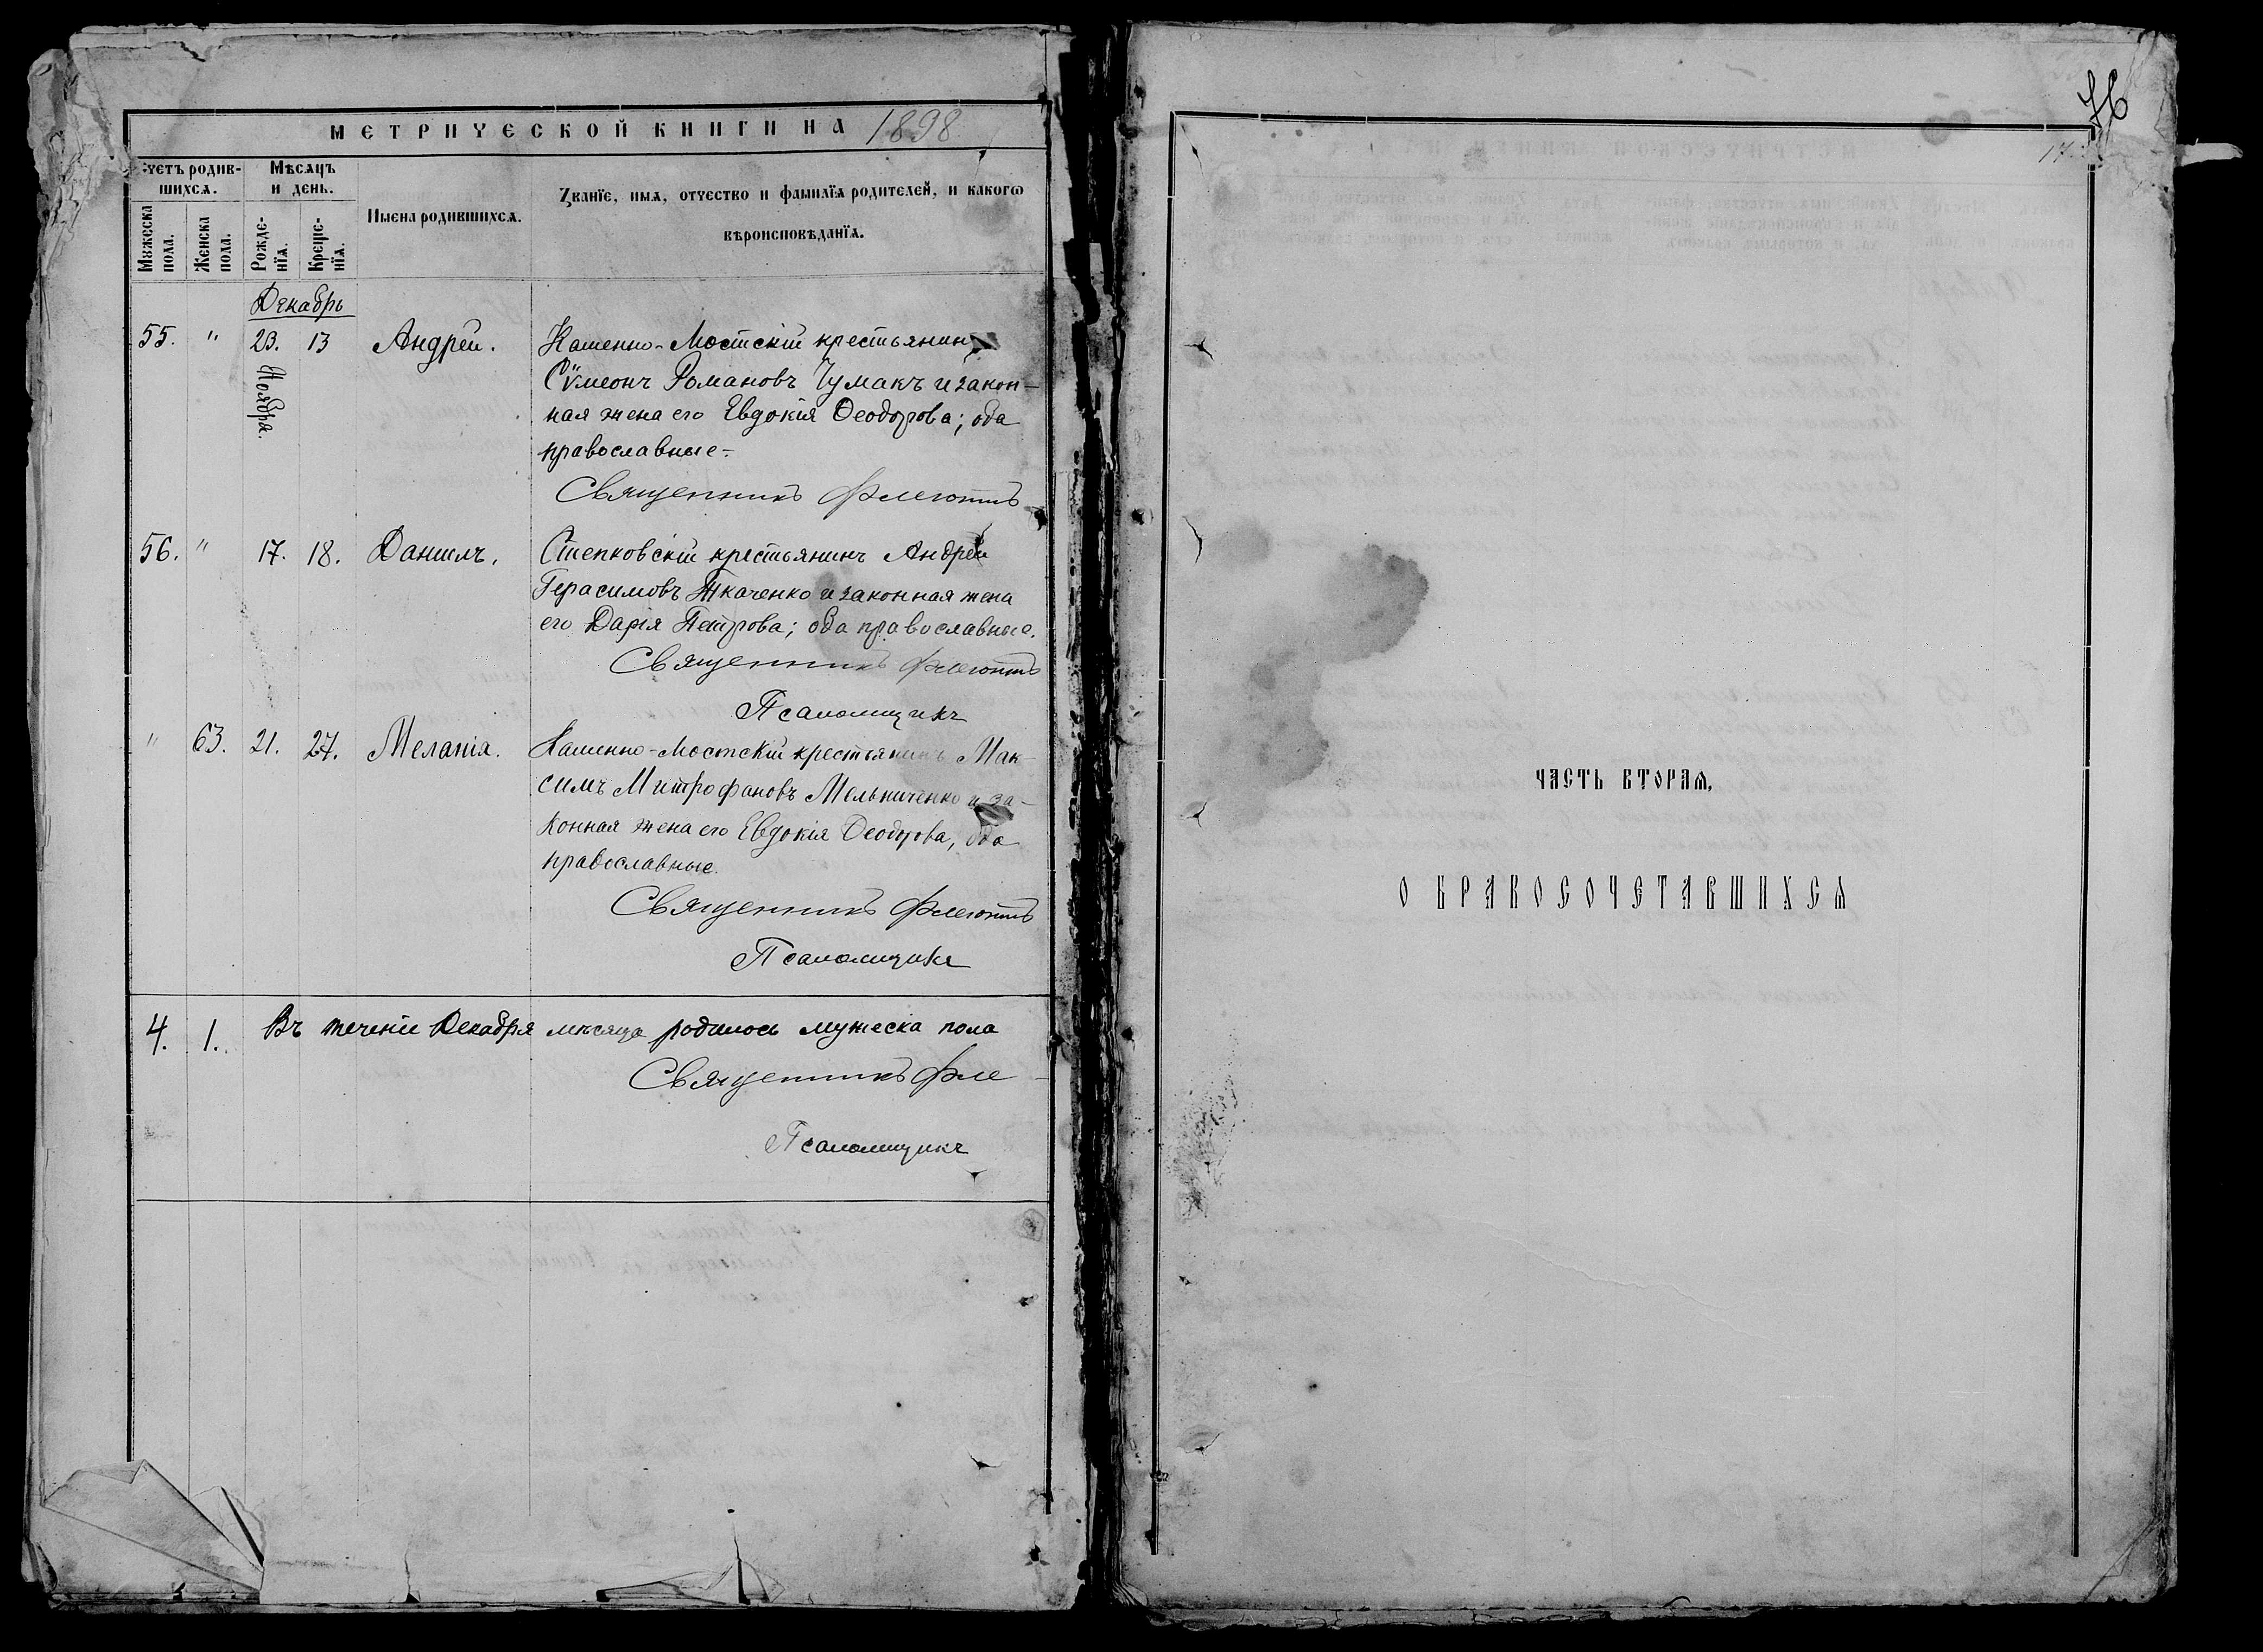 МЕТРИЧЕСКОЙ КНИГИ НА 1898
Счетъ родив-
шихся.
Мѣсяцъ
и день.
Имена родившихся.
Званїе, имя, отчество и фамилїя родителей, и какогѡ
вѣроисповѣданїя.
Мужеска
пола.
Женска
пола.
Рожде-
нїя.
Креще-
нїя.
Декабрь
55. " 23. 13 Андрей. Каменно-Мостскій крестьянинъ
Ноября.
Сѷмеонъ Романовъ Чумакъ и закон-
ная жена его Евдокія Ѳеодорова; оба
православные.-
Священникъ
56. " 17. 18. Даниилъ. Степковскій крестьянинъ Андрей
Герасимовъ Ткаченко и законная жена
его Дарія Петрова; оба православные.
Священникъ
Псаломщикъ
" 63. 21. 27. Меланія. Каменно-Мостскій крестьянинъ Мак-
симъ Митрофановъ Мельниченко и за-
конная жена его Евдокія Ѳеодорова, оба
православные.
Священникъ
Псаломщикъ
4. 1. Въ теченіе Декабря мѣсяца родилось мужеска пола
Священникъ
Псаломщикъ
76
17
ЧАСТЬ ВТОРАѦ,
О БРАКОСОЧЕТАВШИХСѦ